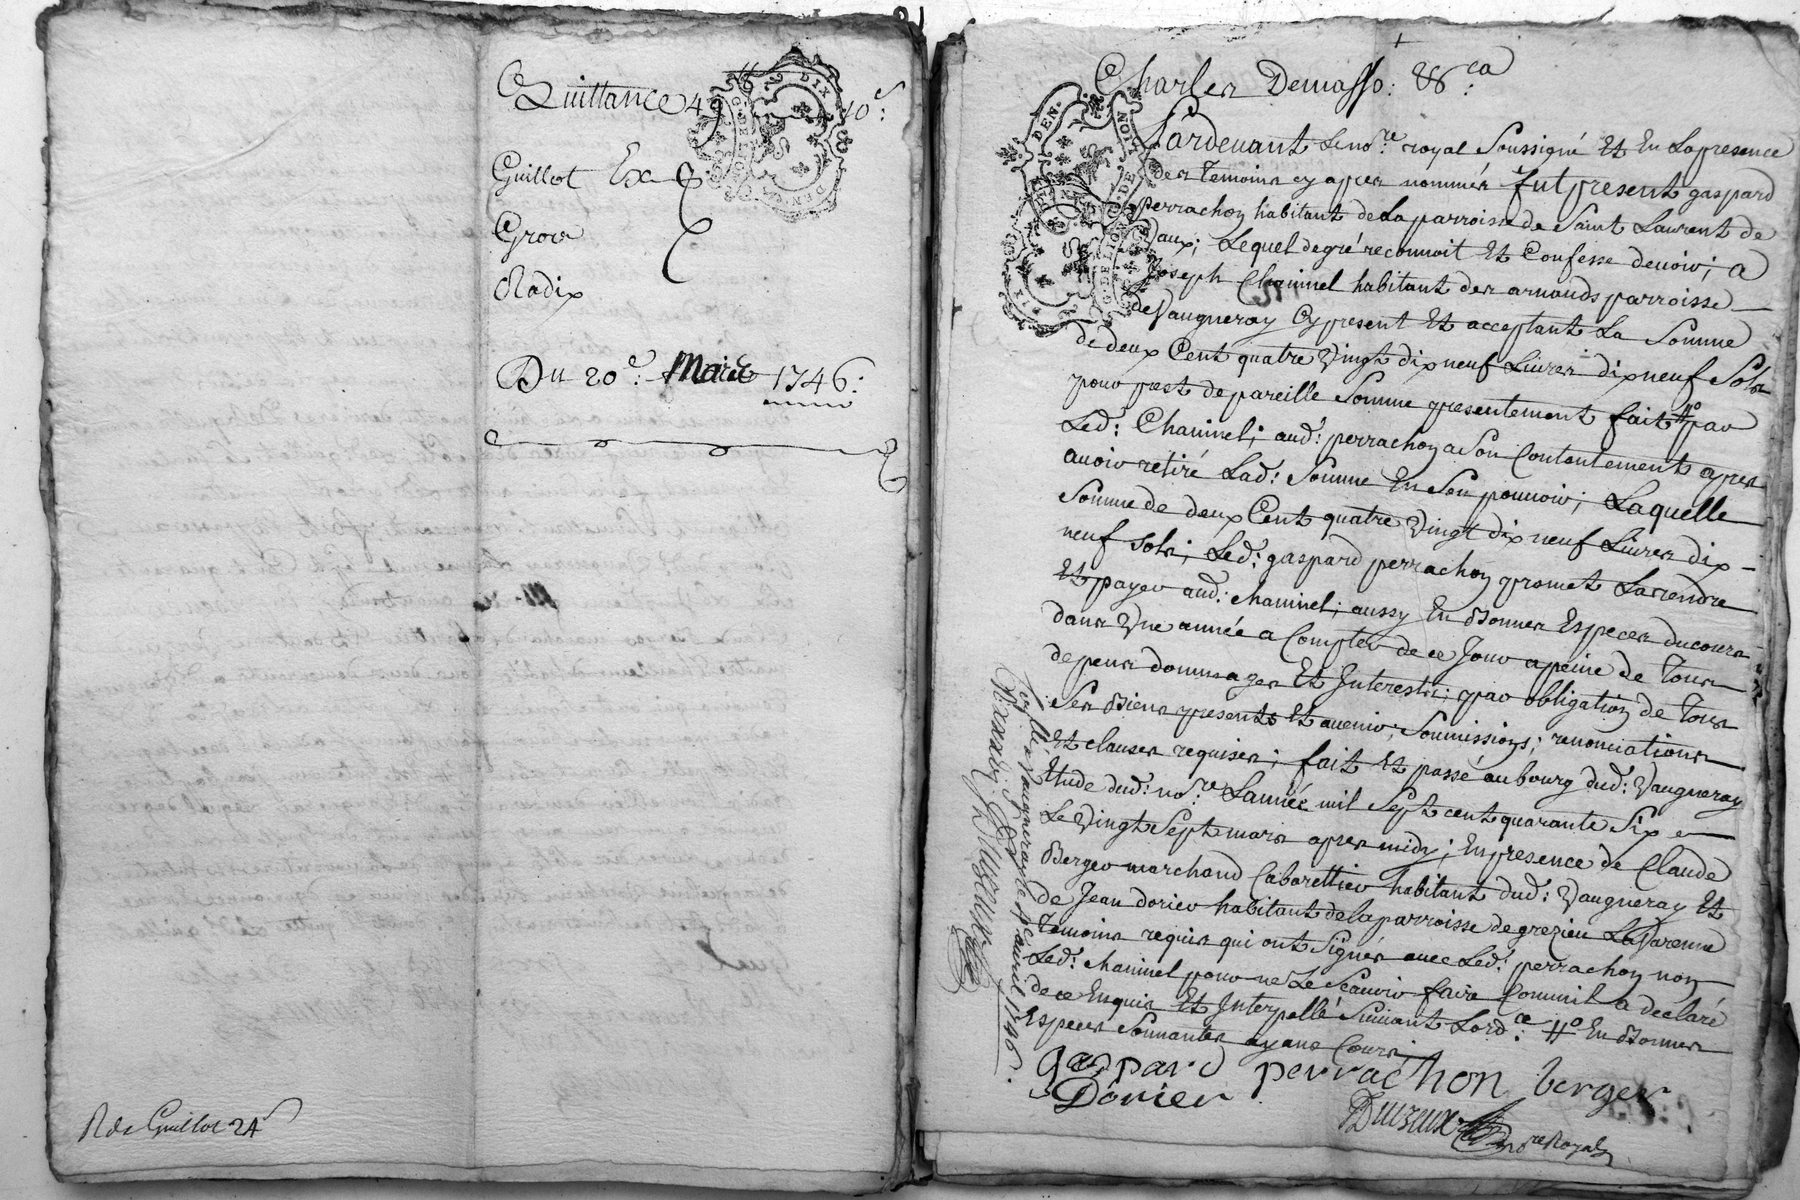 Quittance 49 ₶ 10 s:
Guillot Ex
Gros
Nadix
Du 20e: Mars 1746:
Rds Guillot 24s
Charles Demasso: &ca:
Pardevant Le nore: royal Soussigné Et En La presence
des Temoins cy apres nommés fut present gaspard
perrachon habitant de La parroisse de Saint Laurent de
Vaux; Lequel de gré reconnoit Et Confesse devoir; a
Joseph Chaninel habitant des arnauds parroisse
de Vaugneray Cy present Et acceptant La Somme
de deux Cent quatre Vingt dix neuf Livres dix neuf Sols
pour prest de pareille Somme presentement fait ₶o par
Led: Chaninel; aud: perrachon a Son Contentement apres
avoir retiré Lad: Somme En Son pouvoir; Laquelle
Somme de deux Cent quatre Vingt dix neuf Livres dix-
neuf sols; Led: gaspard perrachon promet La rendre
Et payer aud: chaninel; aussy En Bonnes Especes du cours
dans Une année a Compter de ce Jour a peine de Tous
depens dommages Et Interests; par obligation de Tous
Ses Biens presents et avenir; Soumissions; renonciations
Et clauses requises; fait Et passé au bourg dud: Vaugneray
Etude dud: nore: L'année mil Sept cent quarante Six e
Le Vingt Sept mars apres midy; En presence de Claude
Berger marchand Cabarettier habitant dud: Vaugneray Et
de Jean dorier habitant de la parroisse de grezieu La Varenne
Temoins requis qui ont Signés avec Led: perrachon non
Led: chaninel pour ne Le Scavoir faire Comm'il a declaré
de ce Enquis Et Interpellé Suivant Lordce: ₶o En Bonnes
Especes Sonnantes ayans Cours;
gaspard perrachon berger
Dorier
Duiseux
nore Royal
Controllé a Vaugneray le 4e avril 1746.
Duiseux